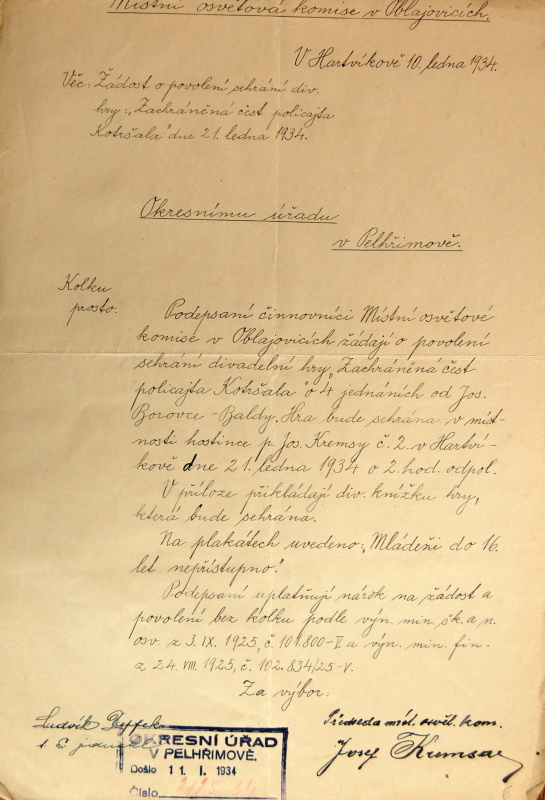 Místní osvětová komise v Oblajovicích.
V Hartvíkově 10. ledna 1934.
Věc: Žádost o povolení sehrání div.
hry: „Zachráněná čest policajta
Kotršala" dne 21. ledna 1934.
Okresnímu úřadu
v Pelhřimově.
Kolku
prosto.
Podepsaní činnovníci Místní osvětové
komise v Oblajovicích žádají o povolení
sehrání divadelní hry „Zachráněná čest
policajta Kotršala" o 4 jednáních od Jos.
Borovce-Baldy. Hra bude sehrána v míst-
nosti hostince p. Jos. Kremsy č. 2. v Hartví-
kově dne 21. ledna 1934 o 2. hod. odpol.
V příloze přikládají div. knížku hry,
která bude sehrána.
Na plakátech uvedeno: „Mládeži do 16.
let nepřístupno."
Podepsaní uplatňují nárok na žádost a
povolení bez kolku podle výn. min. šk. a n.
osv. z 3. IX. 1925, č. 101.800-I a výn. min. fin.
z 24. VIII. 1925, č. 102.834/25-V.
Za výbor.
Ludvík
Předseda míst. osvět. kom.
Josef Kremsa
OKRESNÍ ÚŘAD
V PELHŘIMOVĚ.
Došlo 11. I. 1934
Číslo